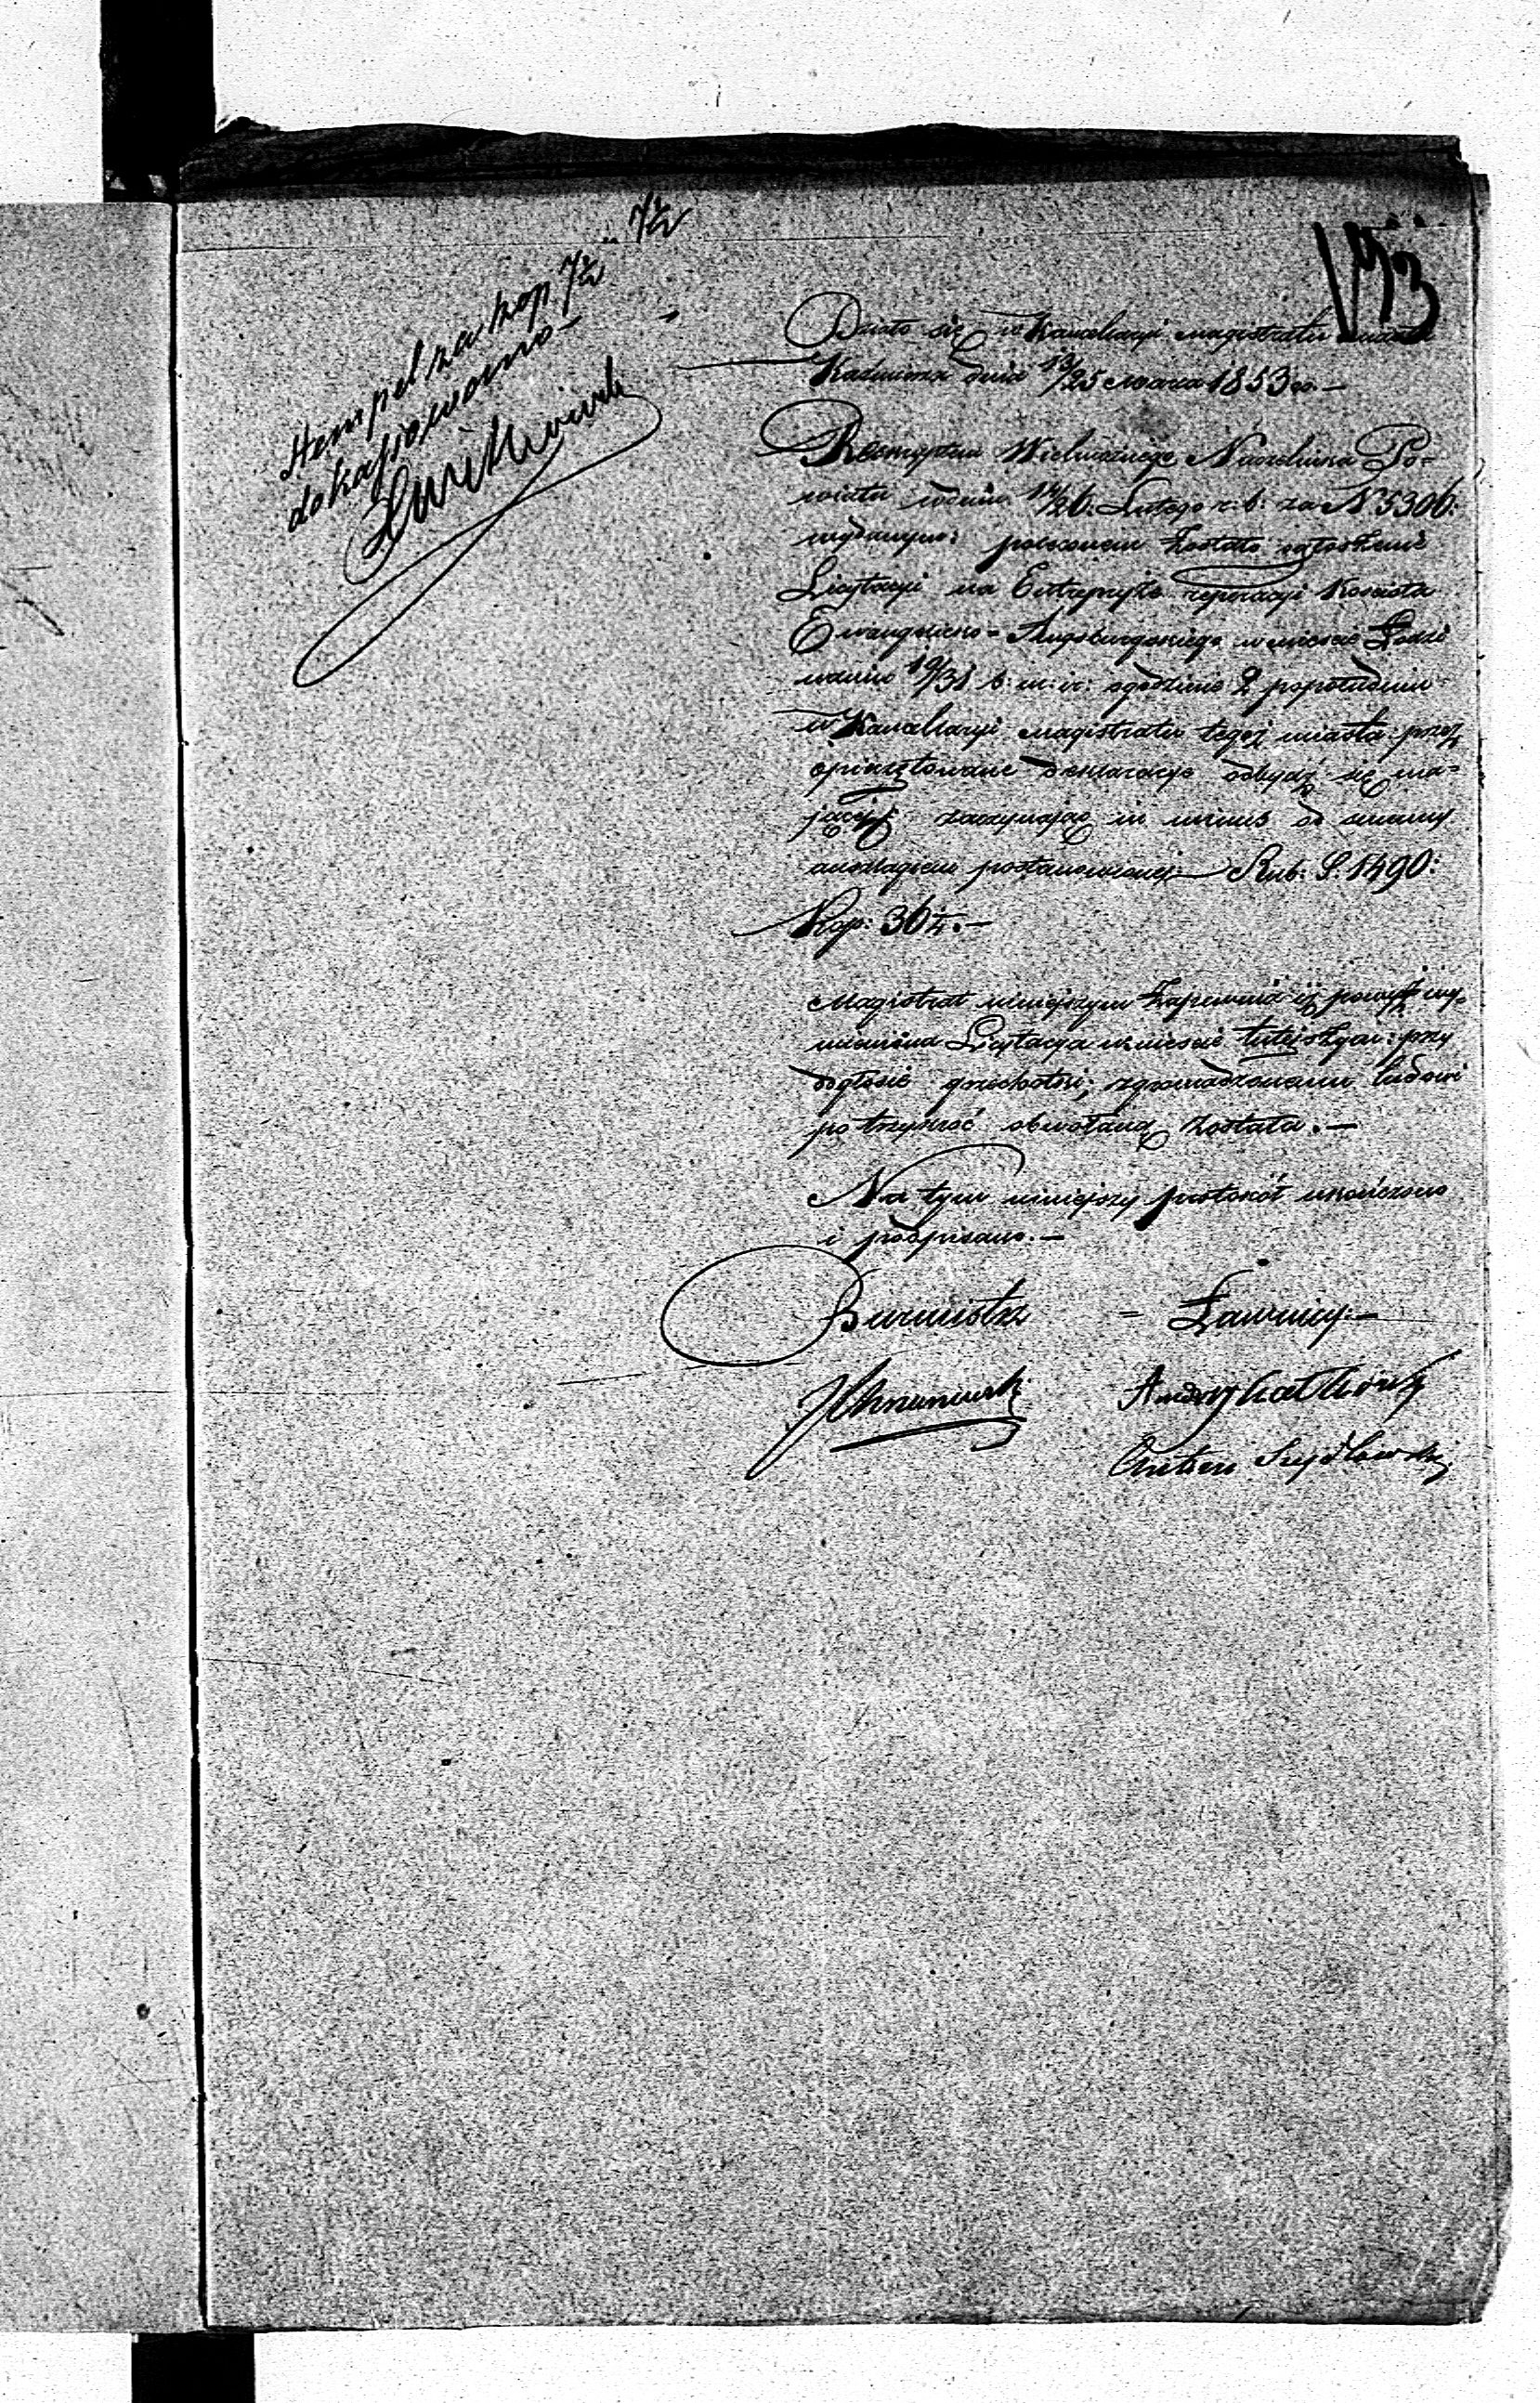 7½
Stempel za kop 7½
dokassowano
193
Działo się w Kancellaryi Magistratu miasta
Kazimierza dnia 13/25 Marca 1853 ro.—
Reskryptem Wielmożnego Naczelnika Po=
wiatu w dniu 14/26: Lutego r. b: za N 5306:
wydanym: poleconem zostało ogłoszenie
Licytacyi na Entrepryzę reperacyi Kościoła
Ewangelicko=Augsburgskiego w mieście Łodzi
w dniu 19/31 b: m: ir: o godzinie 2 popołudniu
w Kancellaryi Magistratu tegoż miasta przez
opieczętowane deklaracye odbydź się ma=
jącej, zaczynając in minus od summy
anszlagiem postanowionej:— Rub: S. 1490:
Kop: 36¼.—
Magistrat niniejszym zapewnia iż powyż wy=
mieniona Licytacya w mieście tutejszym: przy
odgłosie grzechotki, zgromadzonemu ludowi
po trzykroć obwołaną została.—
Na tym niniejszy protokół ukończono
i podpisano.—
Burmistrz = Ławnicy:—
Andrzy
Antoni Szydłowski